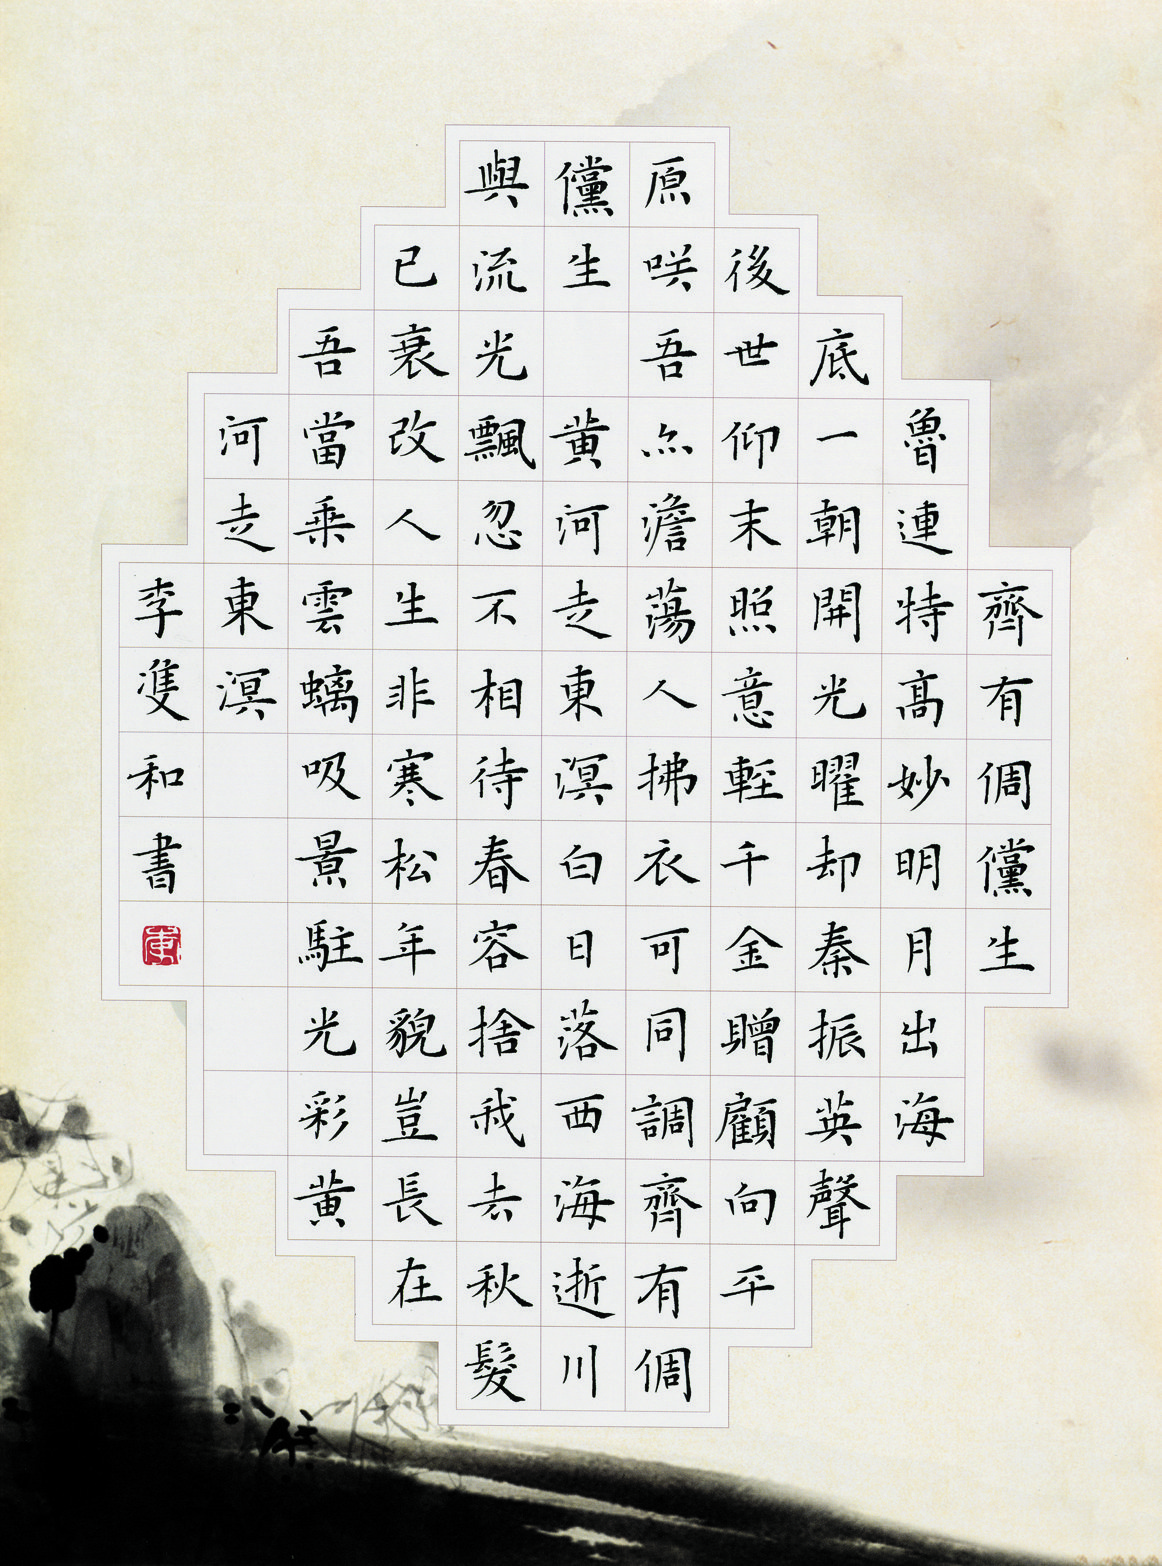 齊有倜儻生
魯連特高妙明月出海
底一朝開光曜却秦振英聲
後世仰末照意輕千金贈顧向平
原咲吾亦澹蕩人拂衣可同調齊有倜
儻生 黄河走東溟白日落西海逝川
與流光飄忽不相待春容捨我去秋髮
已衰改人生非寒松年貌豈長在
吾當乘雲螭吸景駐光彩黄
河走東溟
李隻和書